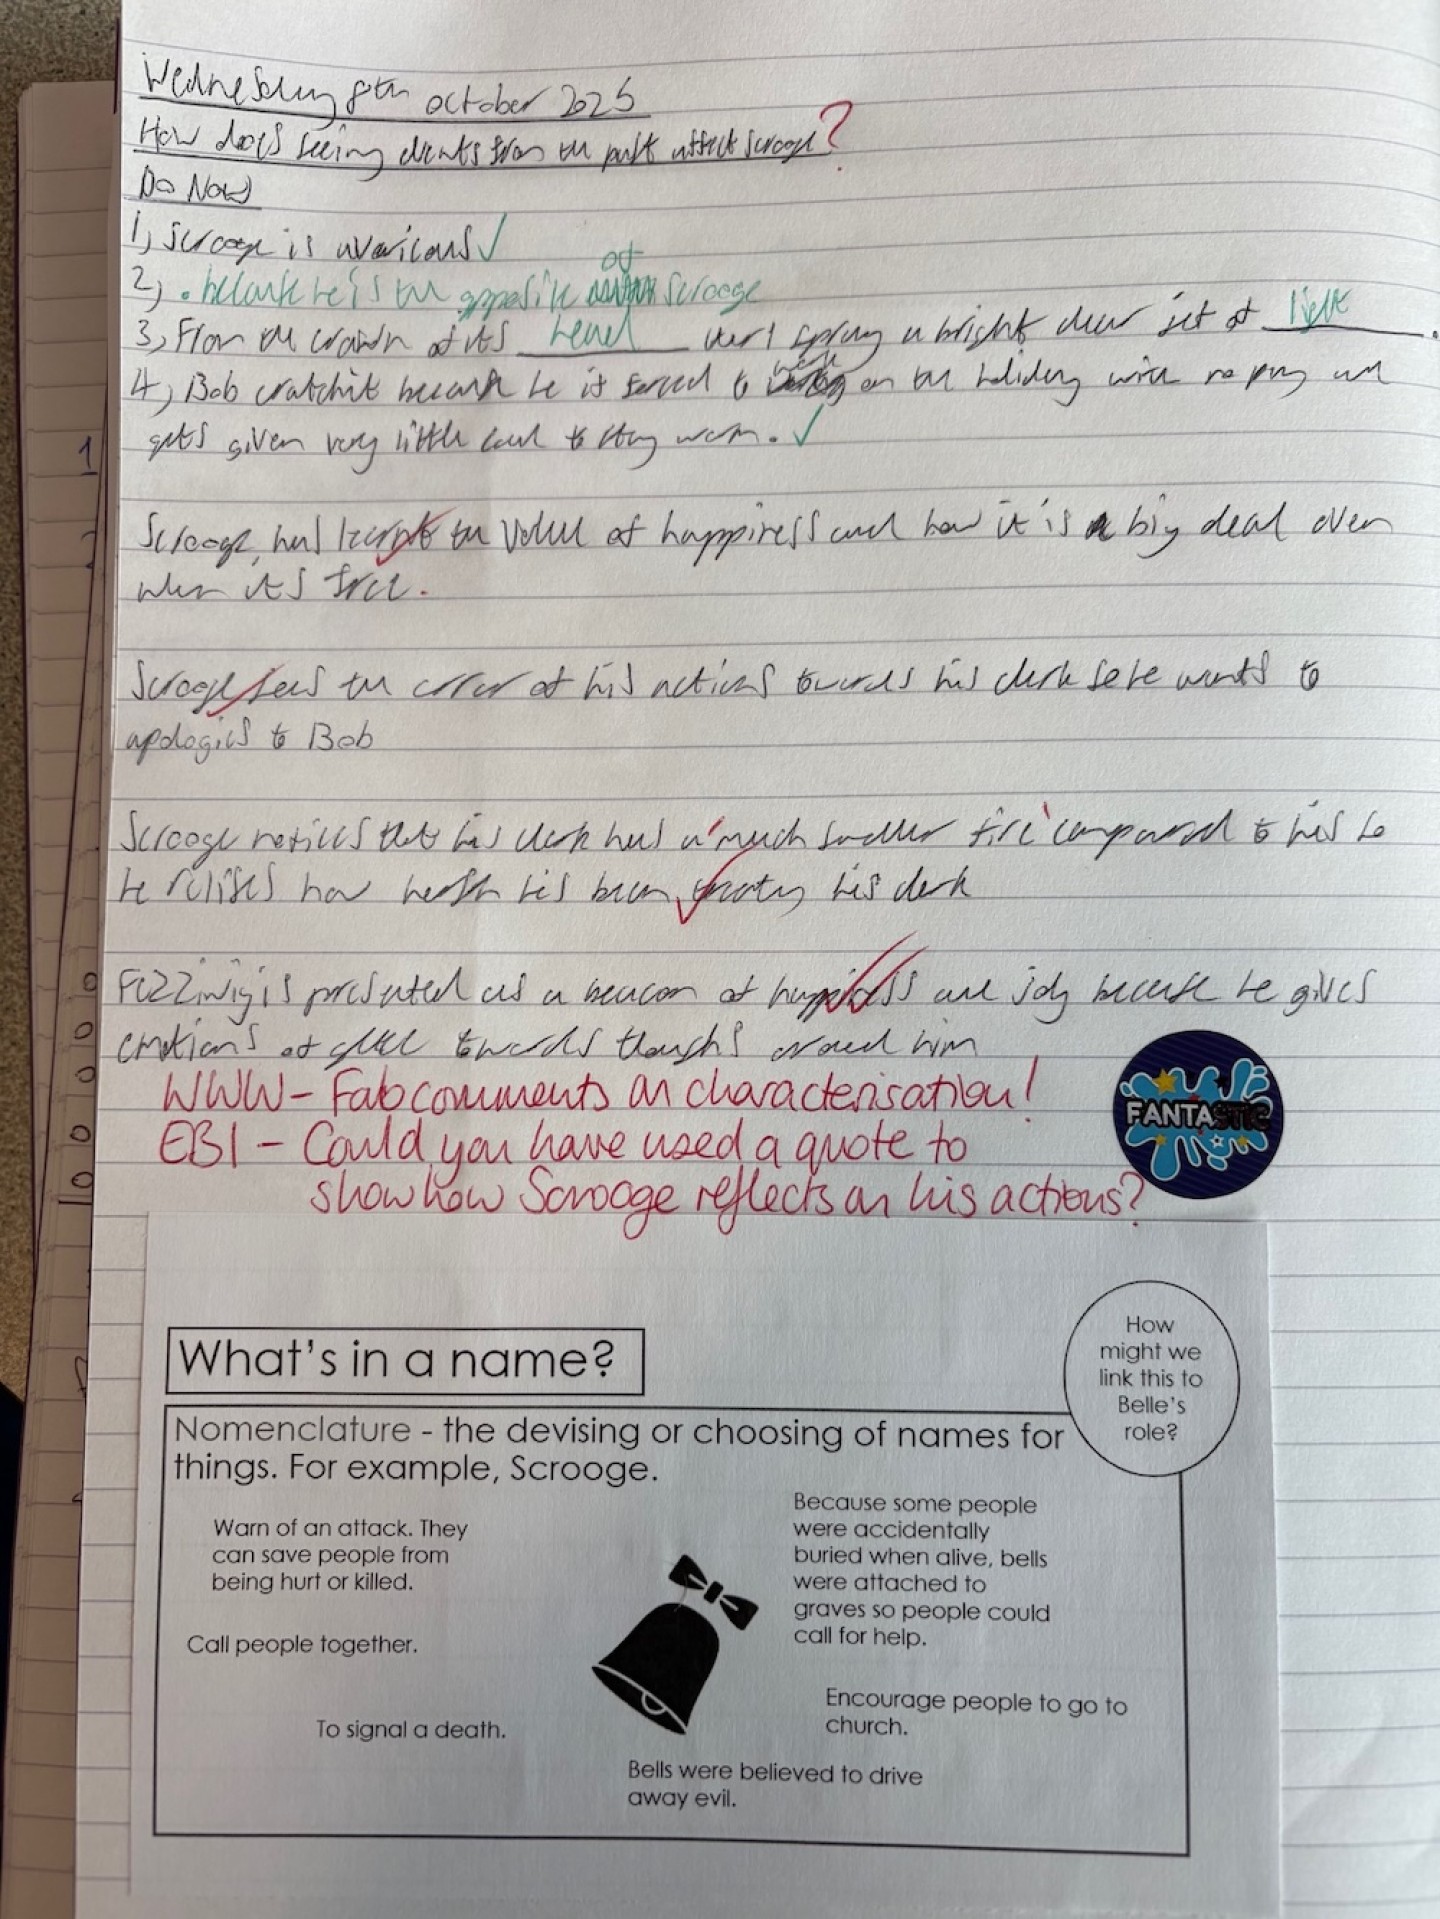 Wednesday 8th October 2025
How does seeing events from the past affect Scrooge?
Do Now
1) Scrooge is avaricous ✓
2) . because he is the opposite of Scrooge
3) From the crown of its head ther spray a bright clear jet of light.
4) Bob cratchit because he is forced to work on the holiday with no pay and
gets given very little coal to stay warm. ✓
Scrooge has learnt the value of happiness and how it is a big deal even
when its free.
Scrooge sees the error of his actions towards his clerk so he wants to
apologies to Bob
Scrooge notices that his clerk has a much smaller fire compared to his so
he relises how harsh his been treating his clerk
Fezziwig is presented as a beacon of happiness and joy because he gives
emotions of glee towards thoughs around him
WWW - Fab comments on characterisation!
EBI - Could you have used a quote to
show how Scrooge reflects on his actions?
FANTASTIC
What's in a name?
How
might we
link this to
Belle's
role?
Nomenclature - the devising or choosing of names for
things. For example, Scrooge.
Warn of an attack. They
can save people from
being hurt or killed.
Because some people
were accidentally
buried when alive, bells
were attached to
graves so people could
call for help.
Call people together.
To signal a death.
Encourage people to go to
church.
Bells were believed to drive
away evil.